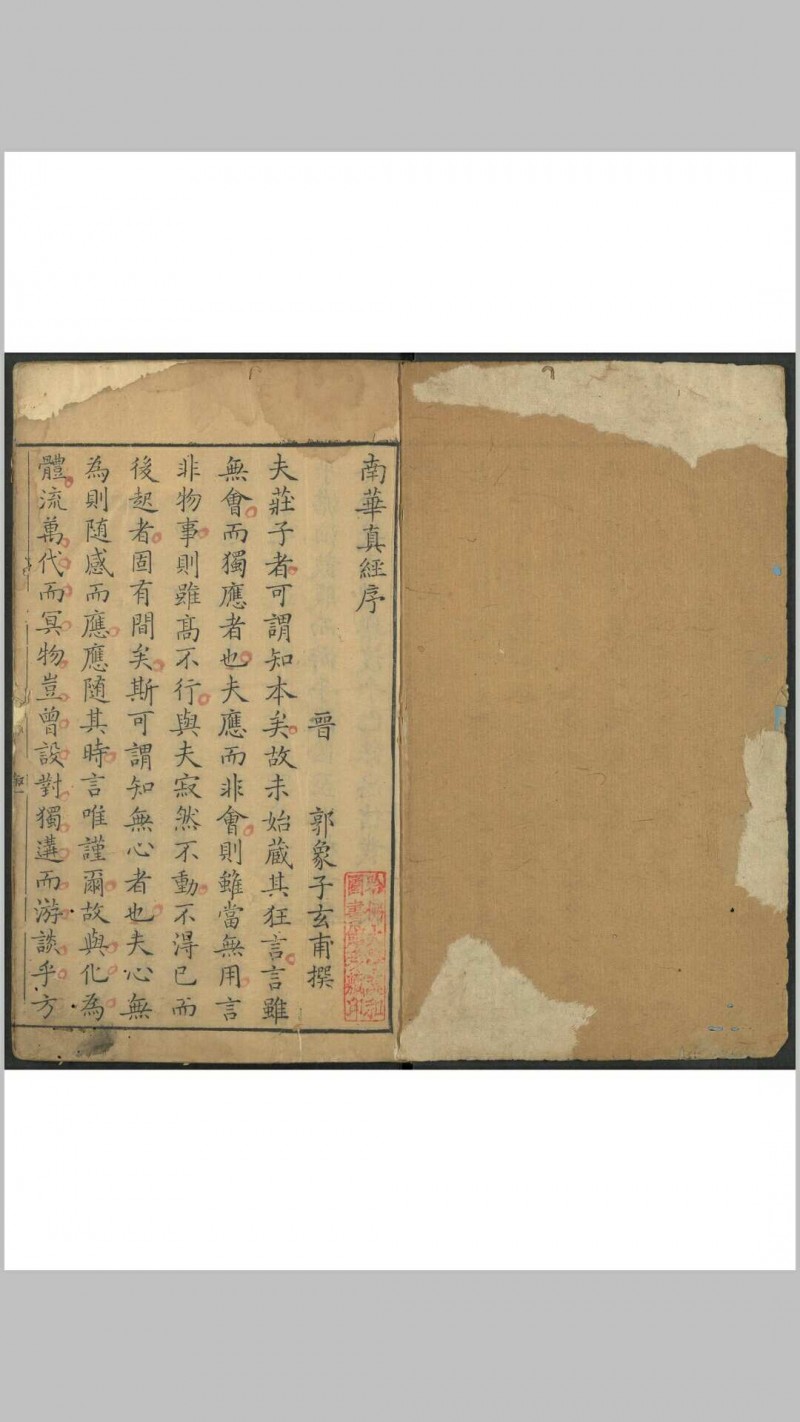 南華真經序
晉 郭象子玄甫撰
夫莊子者可謂知本矣故未始藏其狂言言雖
無會而獨應者也夫應而非會則雖當無用言
非物事則雖高不行與夫寂然不動不得已而
後起者固有間矣斯可謂知無心者也夫心無
為則隨感而應應隨其時言唯謹爾故與化為
體流萬代而冥物豈曾設對獨遘而游談乎方